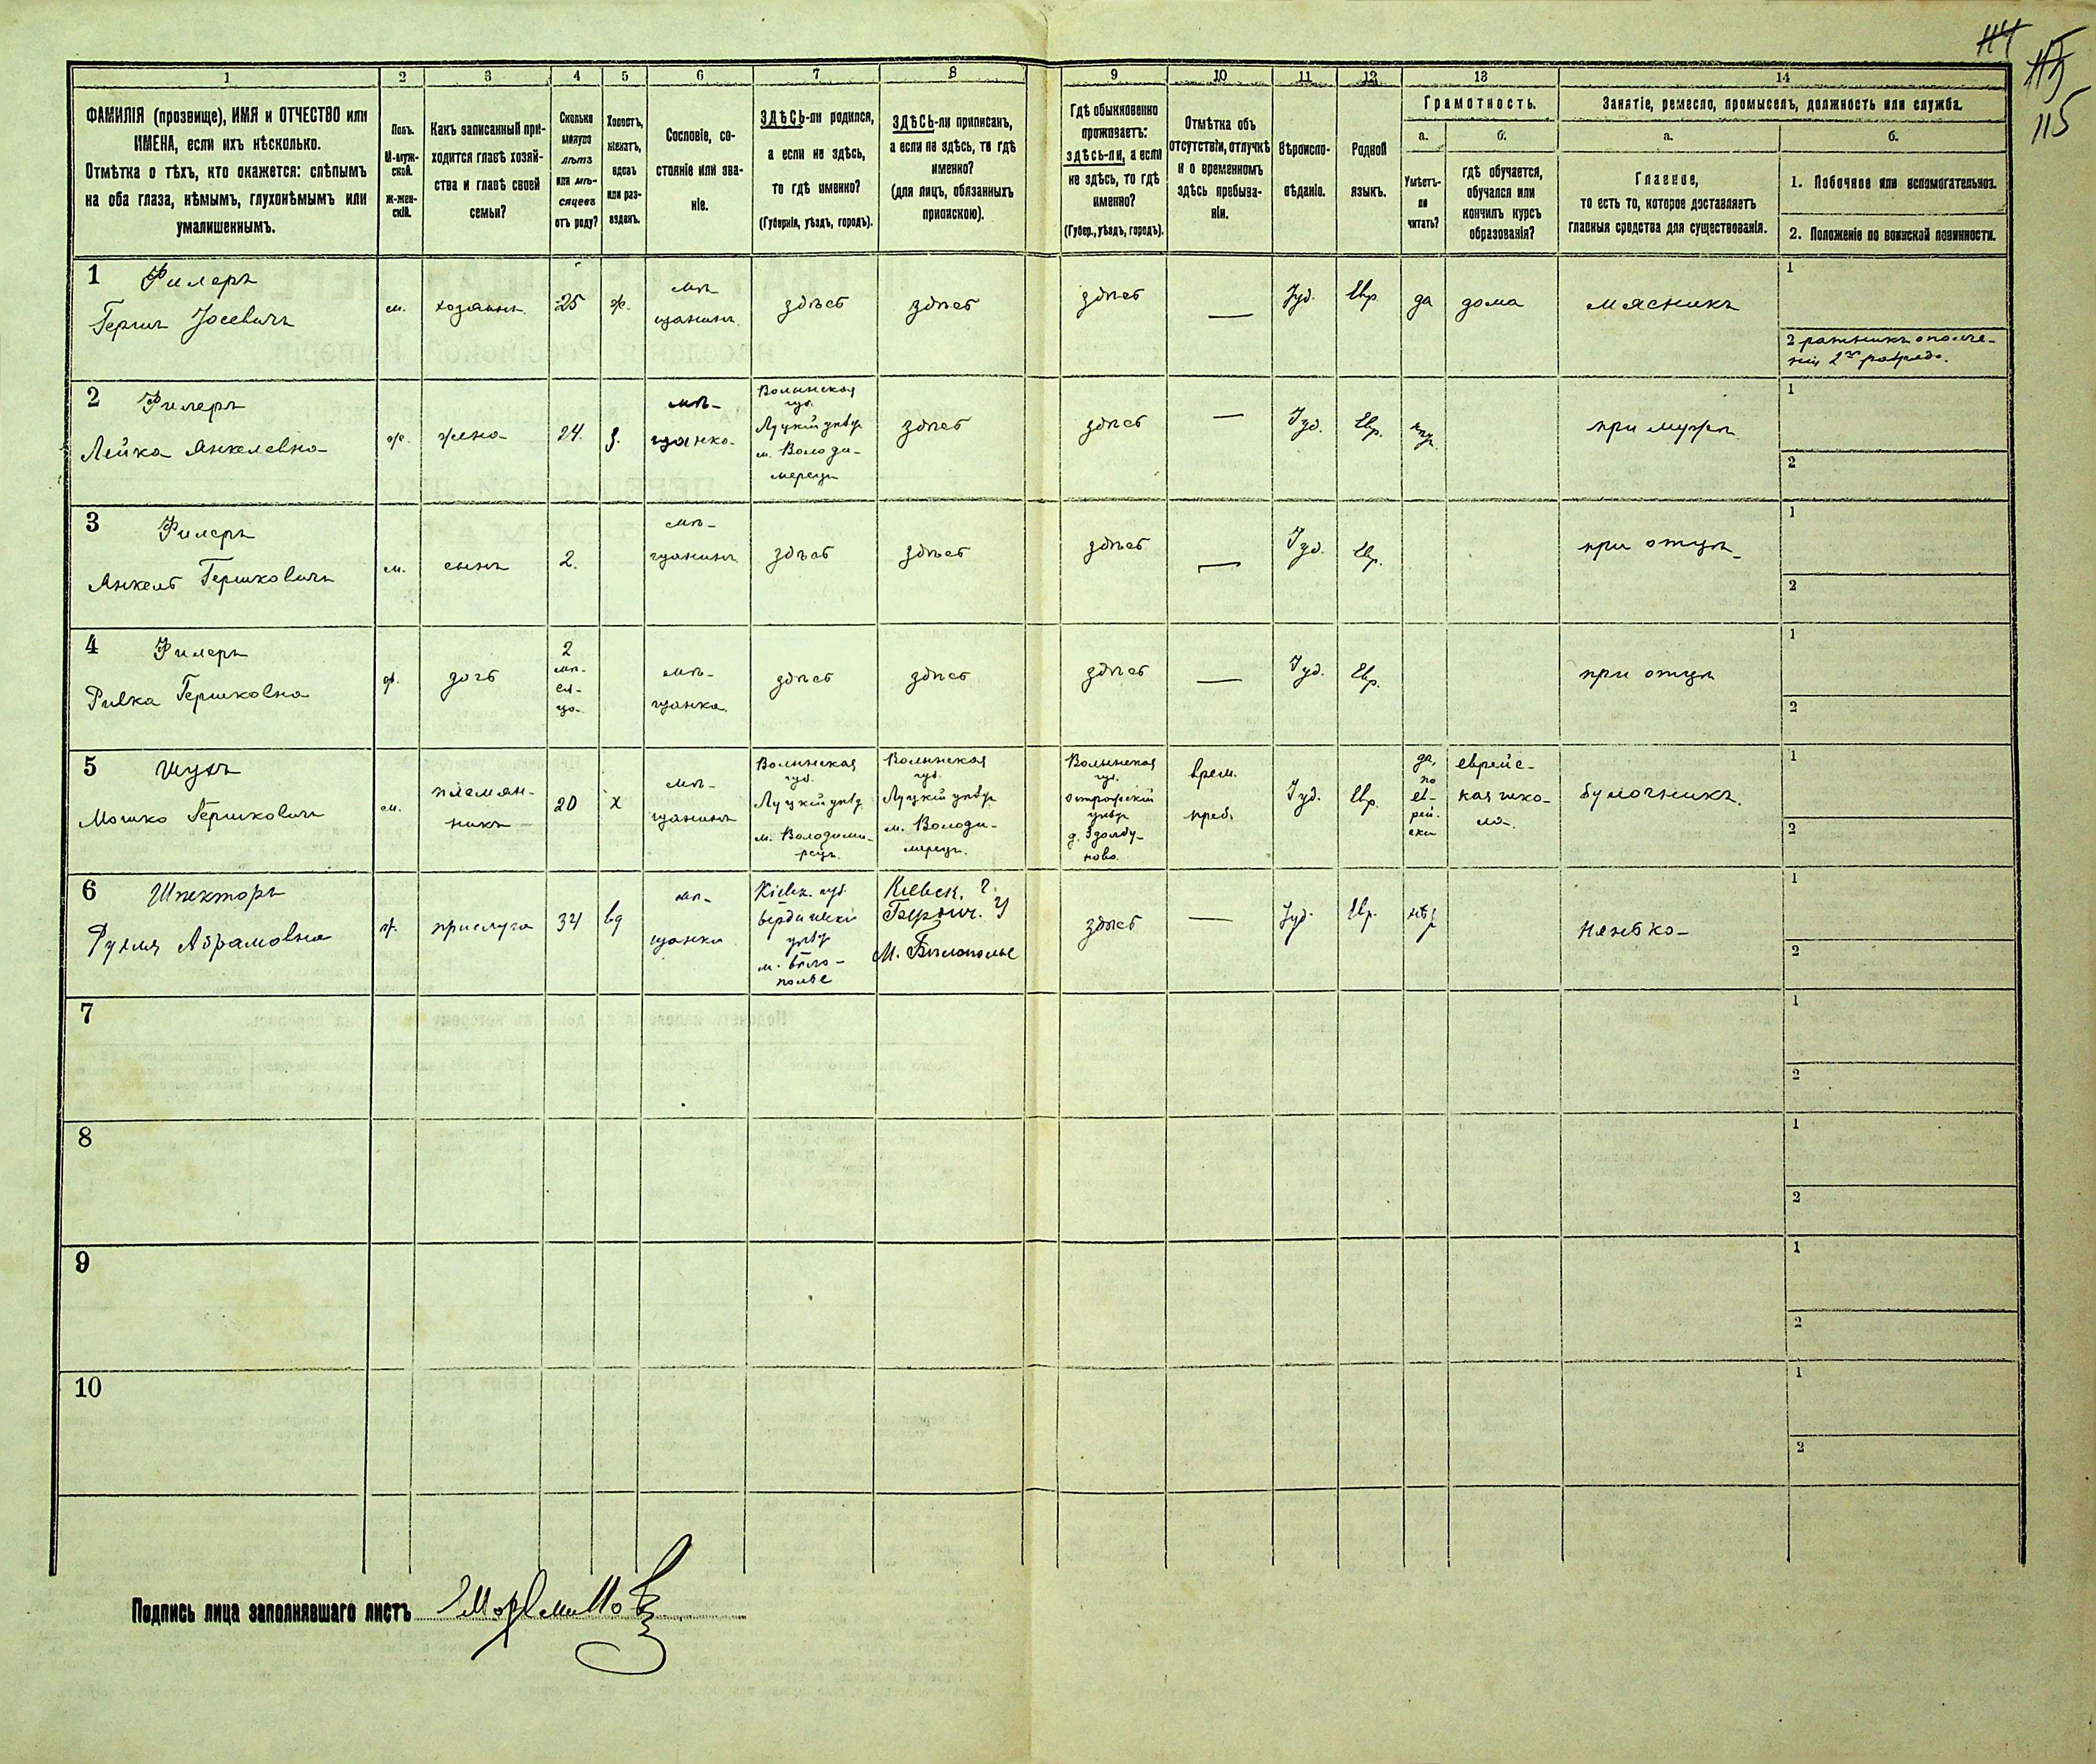 114
115
115
1 2 3 4 5 6 7 8 9 10 11 12 13 14
ФАМИЛІЯ (прозвище), ИМЯ и ОТЧЕСТВО или
ИМЕНА, если ихъ нѣсколько.
Отмѣтка о тѣхъ, кто окажется: слѣпымъ
на оба глаза, нѣмымъ, глухонѣмымъ или
умалишеннымъ.
Полъ.
М-муж-
ской.
Ж-жен-
скій.
Какъ записанный при-
ходится главѣ хозяй-
ства и главѣ своей
семьи?
Сколько
минуло
лѣтъ
или мѣ-
сяцевъ
отъ роду?
Холостъ,
женатъ,
вдовъ
или раз-
веденъ.
Сословіе, со-
стояніе или зва-
ніе.
ЗДѢСЬ-ли родился,
а если не здѣсь,
то гдѣ именно?
(Губернія, уѣздъ, городъ).
ЗДѢСЬ-ли приписанъ,
а если не здѣсь, то гдѣ
именно?
(для лицъ, обязанныхъ
припискою).
Гдѣ обыкновенно
проживаетъ:
здѣсь-ли, а если
не здѣсь, то гдѣ
именно?
(Губер., уѣздъ, городъ).
Отмѣтка объ
отсутствіи, отлучкѣ
и о временномъ
здѣсь пребыва-
ніи.
Вѣроиспо-
вѣданіе.
Родной
языкъ.
Грамотность.
а.
Умѣетъ-
ли
читать?
б.
гдѣ обучается,
обучался или
кончилъ курсъ
образованія?
Занятіе, ремесло, промыселъ, должность или служба.
а.
Главное,
то есть то, которое доставляетъ
главныя средства для существованія.
б.
1. Побочное или вспомогательное.
2. Положеніе по воинской повинности.
1 Филеръ
Гершъ Іосевичъ
м.
хозяинъ
25
ж.
мѣ-
щанинъ
здѣсь
здѣсь
здѣсь
—
Іуд.
Евр
да
дома
мясникъ
1
2 ратникъ ополче-
нія 2го разряда.
2 Филеръ
Лейка Янкелевна
ж.
жена
24.
з.
мѣ-
щанка
Волынская
губ.
Луцкій уѣзд
м. Володи-
мерецъ
здѣсь
здѣсь
—
Іуд.
Евр.
при мужѣ
1
2
3 Филеръ
Янкель Гершковичъ
м.
сынъ
2.
мѣ-
щанинъ
здѣсь
здѣсь
здѣсь
—
Іуд.
Евр.
при отцѣ
1
2
4 Филеръ
Ривка Гершковна
ж.
дочь
2
мѣ-
ся-
ца
мѣ-
щанка
здѣсь
здѣсь
здѣсь
—
Іуд.
Евр.
при отцѣ
1
2
5 Шухъ
Мошко Гершковичъ
м.
племян-
никъ
20
х
мѣ-
щанинъ
Волынская
губ.
Луцкій уѣзд
м. Володими-
рецъ.
Волынская
губ.
Луцкій уѣзд
м. Володи-
мерецъ.
Волынская
губ.
Острожскій
уѣзд
д. Здолбу-
ново.
врем.
преб.
Іуд.
Евр.
да,
по
ев-
рей-
ски
еврейс-
кая шко-
ла
булочникъ.
1
2
6 Шпекторъ
Рухля Абрамовна
ж.
прислуга
34
вд
мѣ-
щанка
Кіевск. губ.
Бердичевскій
уѣзд
м. Бѣло-
полье
Кіевск. г.
Бердич. У
М. Бѣлополье
здѣсь
—
Іуд.
Евр.
нѣт
нянька
1
2
7
1
2
8
1
2
9
1
2
10
1
2
Подпись лица заполнявшаго листъ